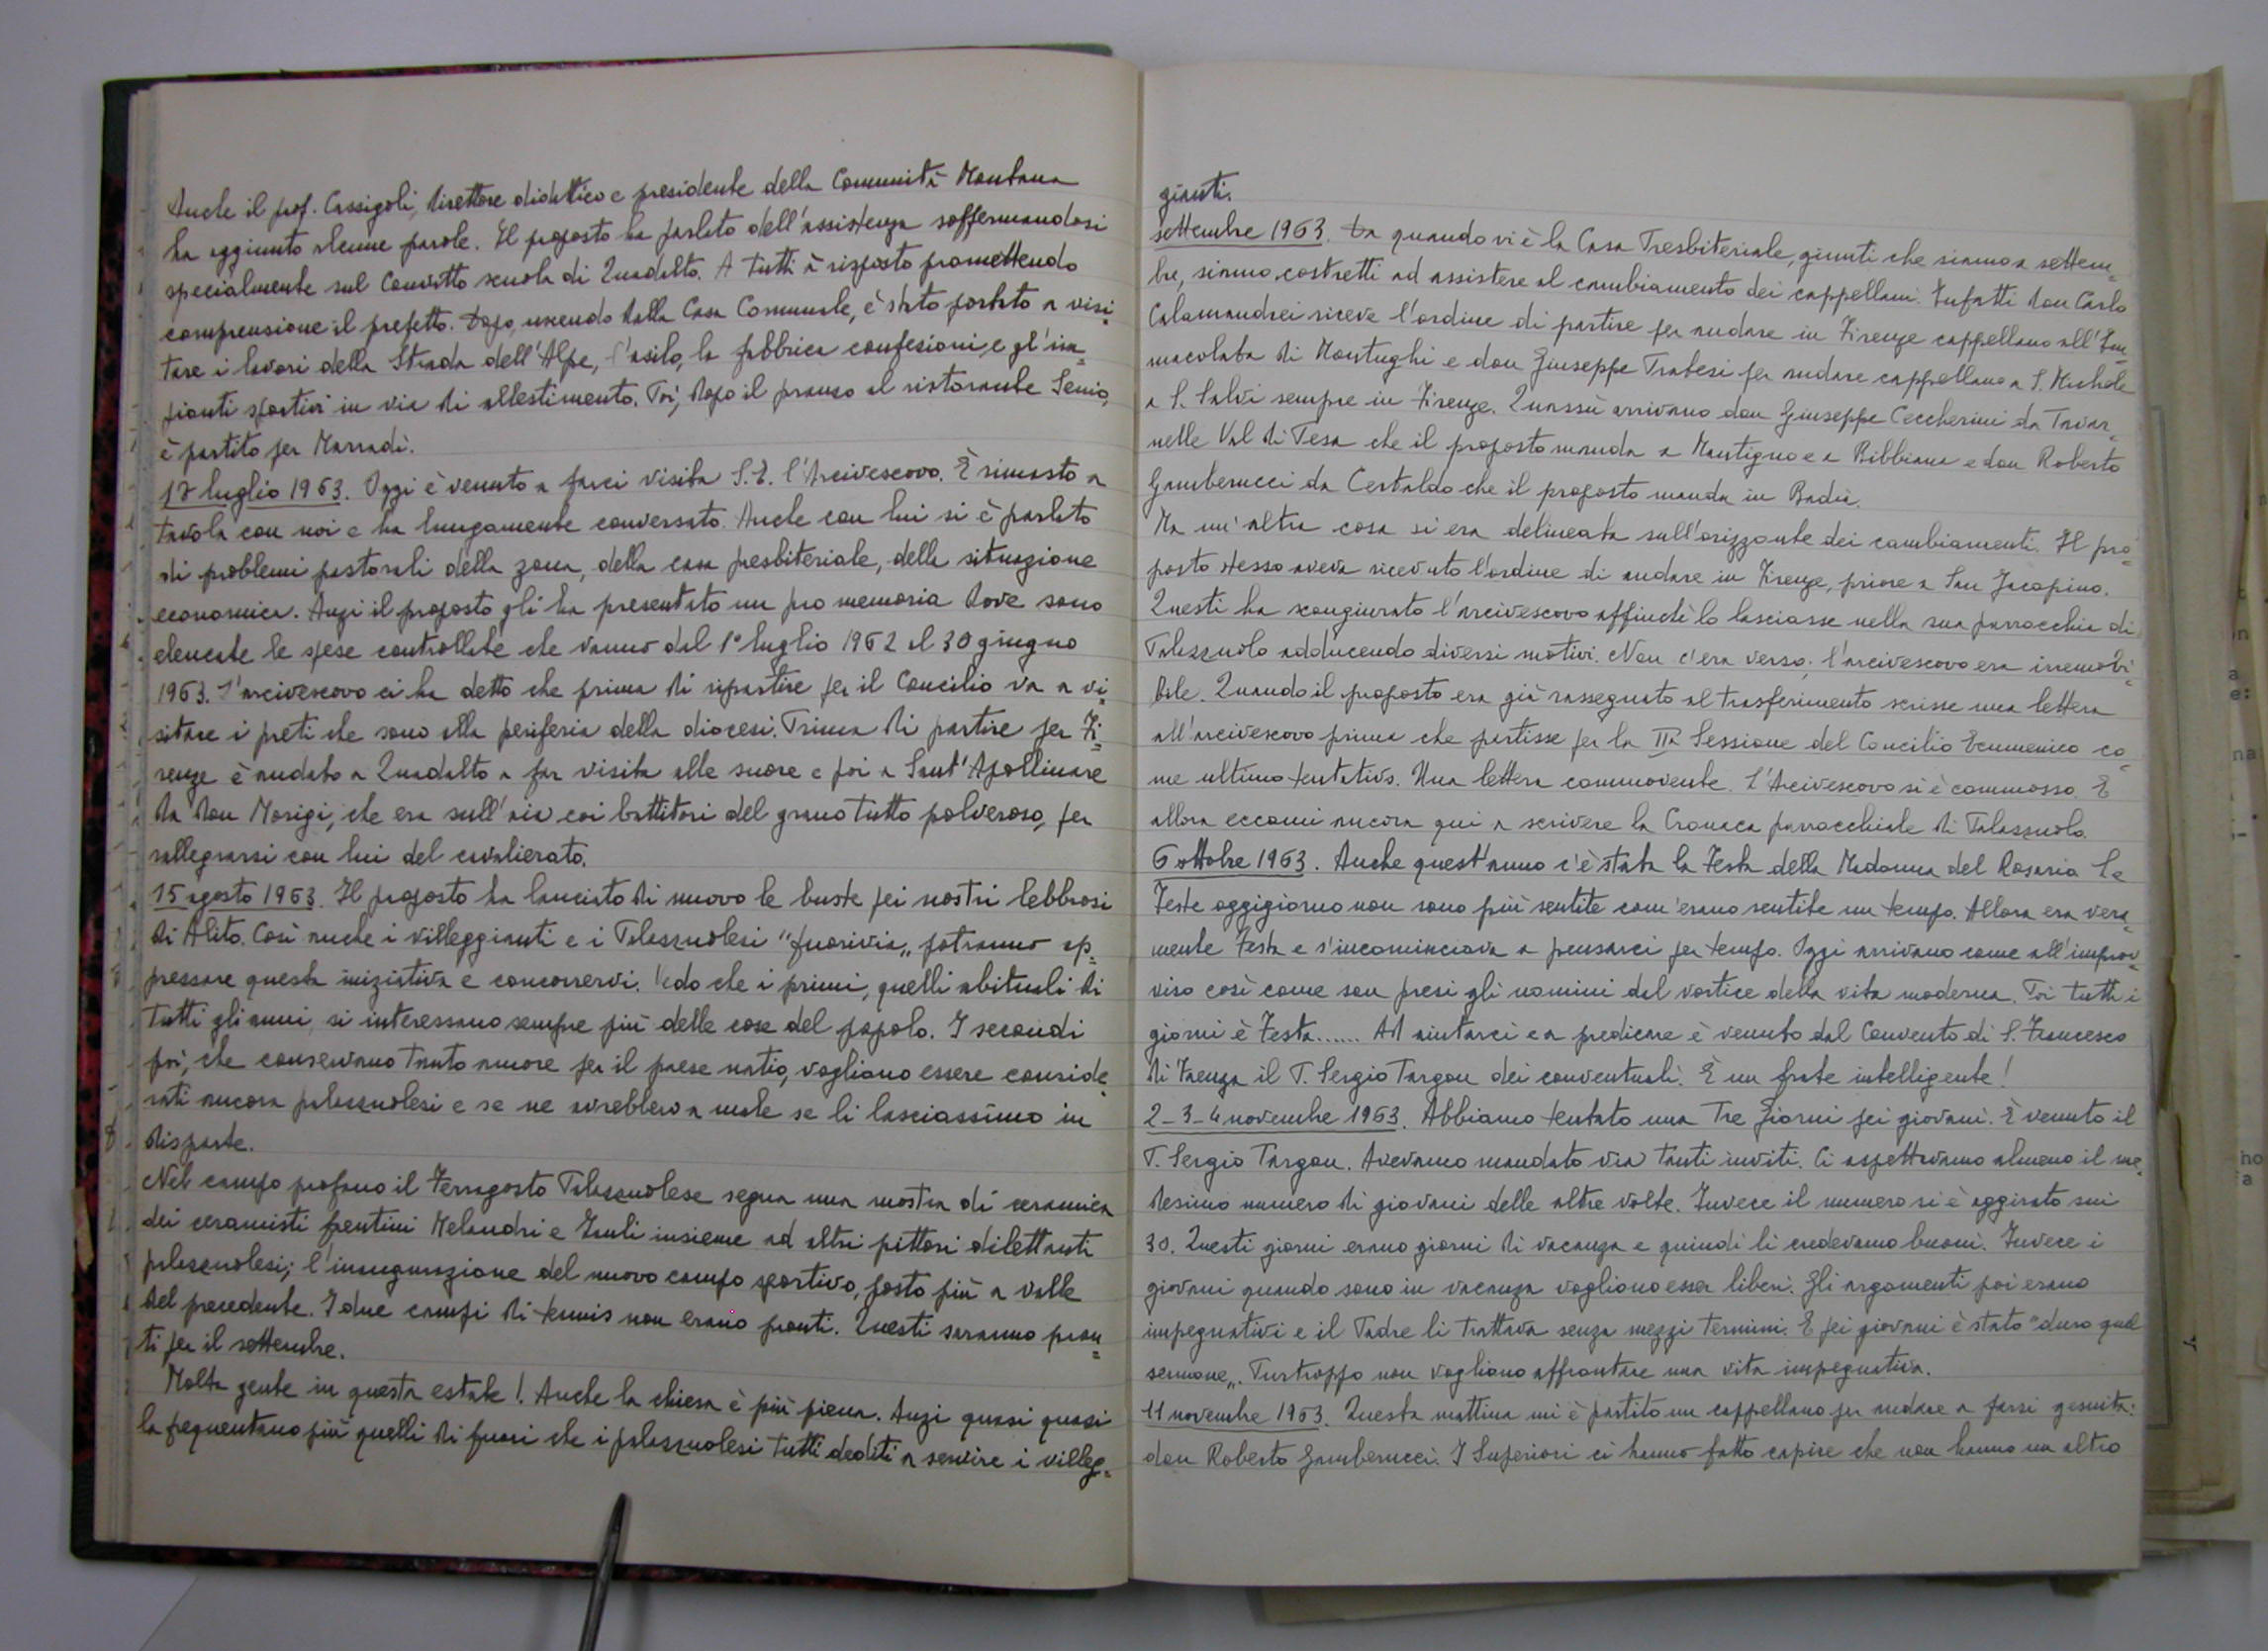 Anche il prof. Cassigoli, direttore didattico e presidente della Comunità Montana
ha aggiunto alcune parole. Il proposto ha parlato dell'assistenza soffermandosi
specialmente sul Convitto scuola di Quadalto. A tutti à risposto promettendo
comprensione il prefetto. Dopo, uscendo dalla Casa Comunale, è stato portato a visi=
tare i lavori della Strada dell'Alpe, l'asilo, la fabbrica confesioni, e gl'im=
pianti sportivi in via di allestimento. Poi, dopo il pranzo al ristorante Senio,
è partito per Marradi.
17 luglio 1963. Oggi è venuto a farci visita S.E. l'Arcivescovo. È rimasto a
tavola con noi e ha lungamente conversato. Anche con lui si è parlato
di problemi pastorali della zona, della casa presbiteriale, della situazione
economica. Anzi il proposto gli ha presentato un pro memoria dove sono
elencate le spese controllate che vanno dal 1° luglio 1962 al 30 giugno
1963. L'arcivescovo ci ha detto che prima di ripartire per il Concilio va a vi=
sitare i preti che sono alla periferia della diocesi. Prima di partire per Fi=
renze è andato a Quadalto a far visita alle suore e poi a Sant'Apollinare
da don Morigi, che era sull'aia coi battitori del grano tutto polveroso, per
rallegrarsi con lui del cavalierato.
15 agosto 1963. Il proposto ha lanciato di nuovo le buste pei nostri lebbrosi
di Alito. Così anche i villeggianti e i Palazzuolesi "fuorivia" potranno ap=
prezzare questa iniziativa e concorrervi. Vedo che i primi, quelli abituali di
tutti gli anni, si interessano sempre più delle cose del popolo. I secondi
poi, che conservano tanto amore per il paese natio, vogliono essere conside=
rati ancora palazzuolesi e se ne avrebbero a male se li lasciassimo in
disparte.
Nel campo profano il Ferragosto Palazzuolese segna una mostra di ceramica
dei ceramisti faentini Melandri e Zauli insieme ad altri pittori dilettanti
palazzuolesi; l'inaugurazione del nuovo campo sportivo, posto più a valle
del precedente. I due campi di tennis non erano pronti. Questi saranno pron=
ti per il settembre.
Molta gente in questa estate! Anche la chiesa è più piena. Anzi quasi quasi
la frequentano più quelli di fuori che i palazzuolesi tutti dediti a servire i villeg=
gianti.
settembre 1963. Da quando vi è la Casa Presbiteriale, giunti che siamo a settem=
bre, siamo costretti ad assistere al cambiamento dei cappellani. Infatti don Carlo
Calamandrei riceve l'ordine di partire per andare in Firenze cappellano all'Im=
macolata di Montughi e don Giuseppe Trabesi per andare cappellano a S. Michele
a S. Salvi sempre in Firenze. Quassù arrivano don Giuseppe Ceccherini da Tavar=
nelle Val di Pesa che il proposto manda a Mantigno e a Bibbiana e don Roberto
Gamberucci da Certaldo che il proposto manda in Badia.
Ma un'altra cosa si era delineata sull'orizzonte dei cambiamenti. Il pro=
posto stesso aveva ricevuto l'ordine di andare in Firenze, priore a San Jacopino.
Questi ha scongiurato l'arcivescovo affinché lo lasciasse nella sua parrocchia di
Palazzuolo adducendo diversi motivi. Non c'era verso; l'arcivescovo era irremovi=
bile. Quando il proposto era già rassegnato al trasferimento scrisse una lettera
all'arcivescovo prima che partisse per la IIa Sessione del Concilio Ecumenico co=
me ultimo tentativo. Una lettera commovente. L'Arcivescovo si è commosso. E
allora eccomi ancora qui a scrivere la Cronaca parrocchiale di Palazzuolo.
6 ottobre 1963. Anche quest'anno c'è stata la Festa della Madonna del Rosario. Le
Feste oggigiorno non sono più sentite com'erano sentite un tempo. Allora era vera=
mente festa e s'incominciava a pensarci per tempo. Oggi arrivano come all'improv=
viso così come son presi gli uomini dal vortice della vita moderna. Poi tutti i
giorni è Festa...... Ad aiutarci e a predicare è venuto dal Convento di S. Francesco
di Faenza il P. Sergio Targon dei conventuali. È un frate intelligente!
2-3-4 novembre 1963. Abbiamo tentato una Tre Giorni pei giovani. È venuto il
P. Sergio Targon. Avevamo mandato via tanti inviti. Ci aspettavamo almeno il me=
desimo numero di giovani delle altre volte. Invece il numero si è aggirato sui
30. Questi giorni erano giorni di vacanza e quindi li credevamo buoni. Invece i
giovani quando sono in vacanza vogliono esser liberi. Gli argomenti poi erano
impegnativi e il Padre li trattava senza mezzi termini. E pei giovani è stato "duro quel
sermone". Purtroppo non vogliono affrontare una vita impegnativa.
11 novembre 1963. Questa mattina mi è partito un cappellano per andare a farsi gesuita:
don Roberto Gamberucci. I Superiori ci hanno fatto capire che non hanno un altro